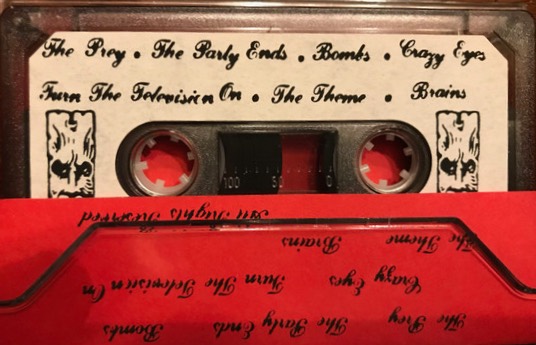 The Prey • The Party Ends • Bombs • Crazy Eyes
Turn The Television On • The Theme • Brains
100 50 0
All Rights Reserved
The Theme Brains
Crazy Eyes Turn The Television On
The Prey The Party Ends Bombs